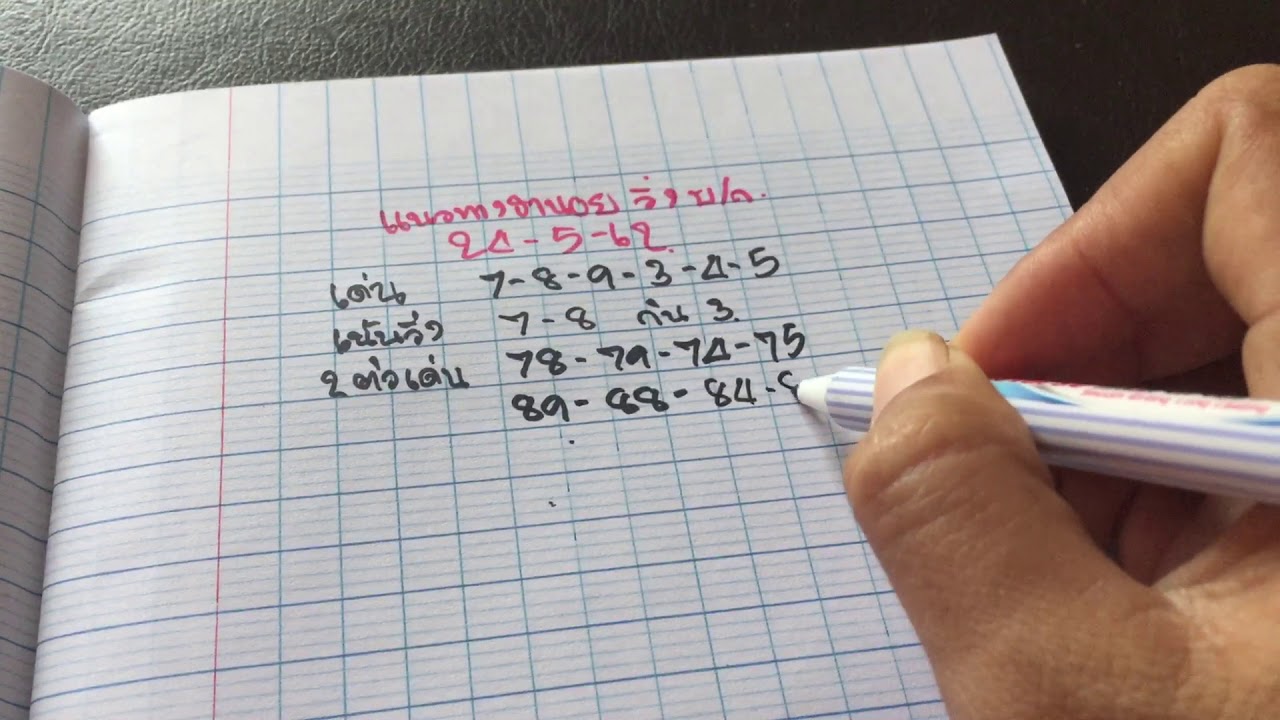 แนวทางฮานอย วิ่ง บ/ล.
24-5-62.
เด่น 7-8-9-3-4-5
เน้นวิ่ง 7-8 กัน 3.
2 ตัวเด่น 78-79-74-75
89-88-84-8